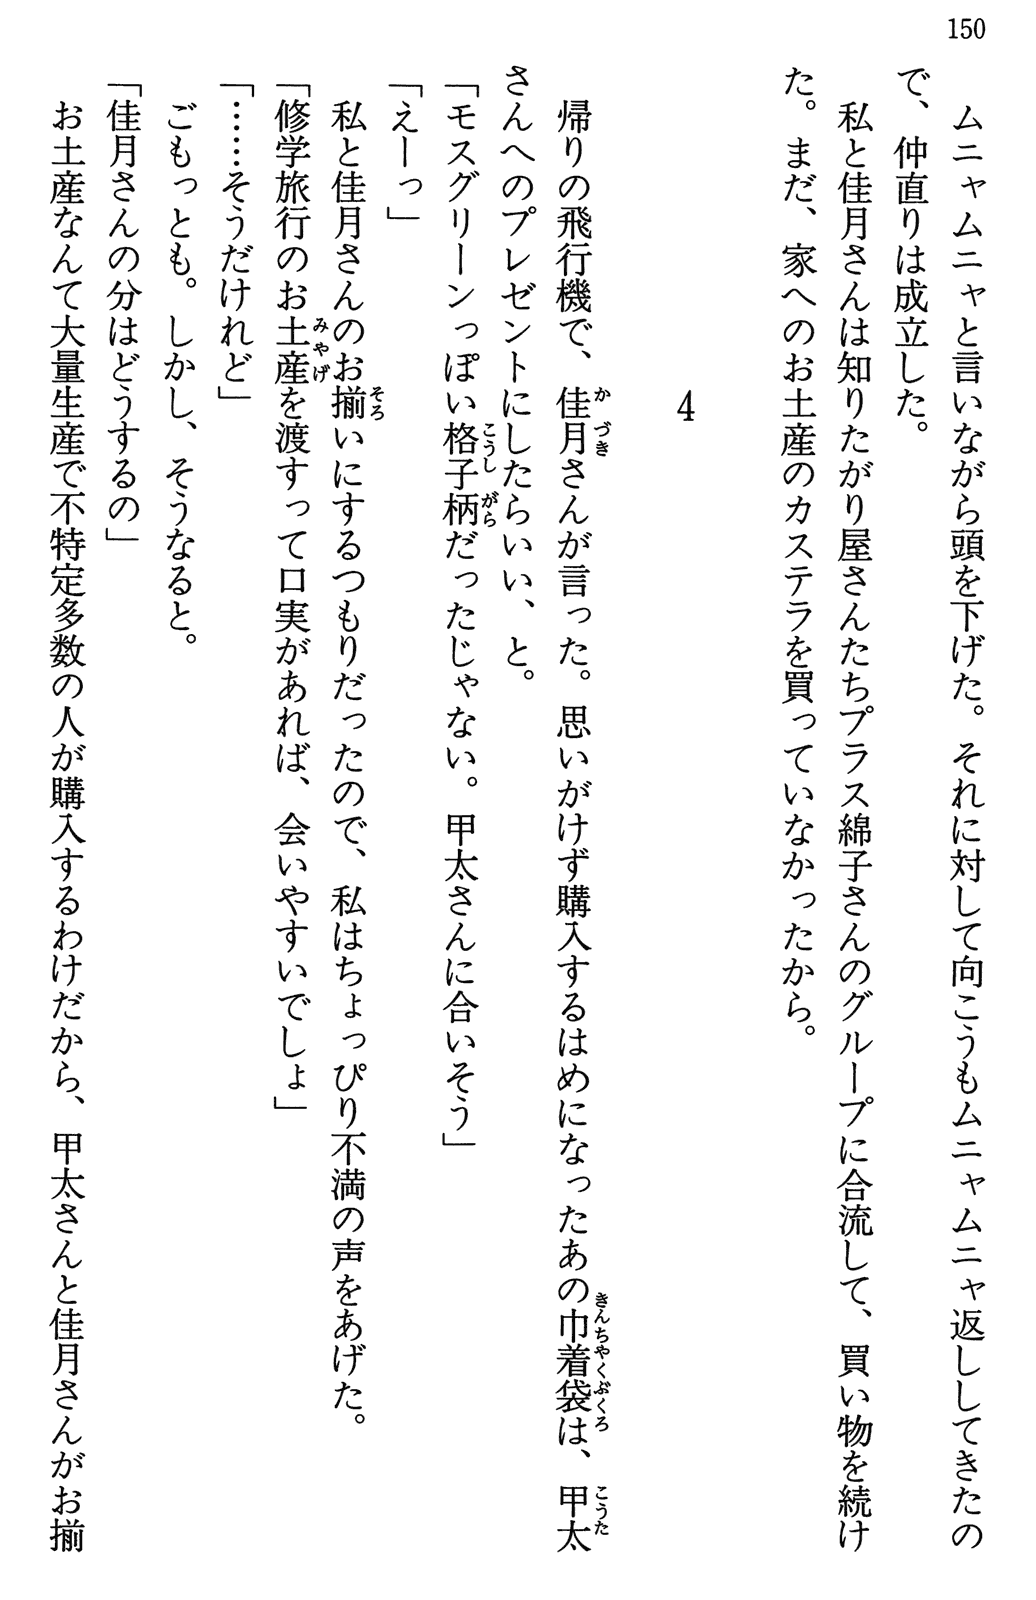 150
　ムニャムニャと言いながら頭を下げた。それに対して向こうもムニャムニャ返ししてきたの
で、仲直りは成立した。
　私と佳月さんは知りたがり屋さんたちプラス綿子さんのグループに合流して、買い物を続け
た。まだ、家へのお土産のカステラを買っていなかったから。
4
　帰りの飛行機で、佳月さんが言った。思いがけず購入するはめになったあの巾着袋は、甲太
かづき
きんちゃくぶくろ
こうた
さんへのプレゼントにしたらいい、と。
「モスグリーンっぽい格子柄だったじゃない。甲太さんに合いそう」
こうしがら
「えーっ」
　私と佳月さんのお揃いにするつもりだったので、私はちょっぴり不満の声をあげた。
そろ
「修学旅行のお土産を渡すって口実があれば、会いやすいでしょ」
みやげ
「……そうだけれど」
　ごもっとも。しかし、そうなると。
「佳月さんの分はどうするの」
　お土産なんて大量生産で不特定多数の人が購入するわけだから、甲太さんと佳月さんがお揃